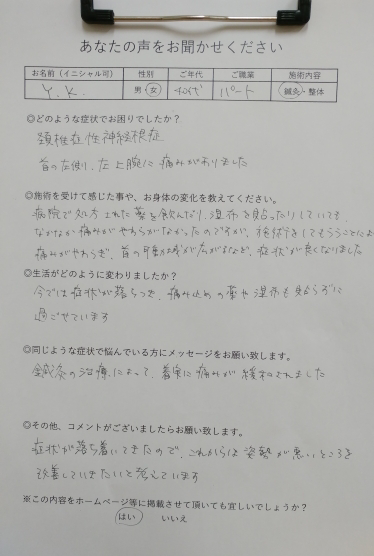 あなたの声をお聞かせください
お名前（イニシャル可） 性別 ご年代 ご職業 施術内容
Y.K. 男・女 40代 パート 鍼灸・整体
◎どのような症状でお困りでしたか？
頚椎症性神経根症
首の左側、左上腕に痛みがありました
◎施術を受けて感じた事や、お身体の変化を教えてください。
病院で処方された薬を飲んだり、湿布を貼ったりしていても、
なかなか痛みがやわらがなかったのですが、施術をしてもらうことによ
痛みがやわらぎ、首の可動域が広がるなど、症状が良くなりました
◎生活がどのように変わりましたか？
今では症状が落ちつき、痛み止めの薬や湿布も貼らずに
過ごせています
◎同じような症状で悩んでいる方にメッセージをお願い致します。
鍼灸の治療によって、着実に痛みが緩和されました
◎その他、コメントがございましたらお願い致します。
症状が落ち着いてきたので、これからは姿勢が悪いところを
改善していきたいと考えています
※この内容をホームページ等に掲載させて頂いても宜しいでしょうか？
はい いいえ